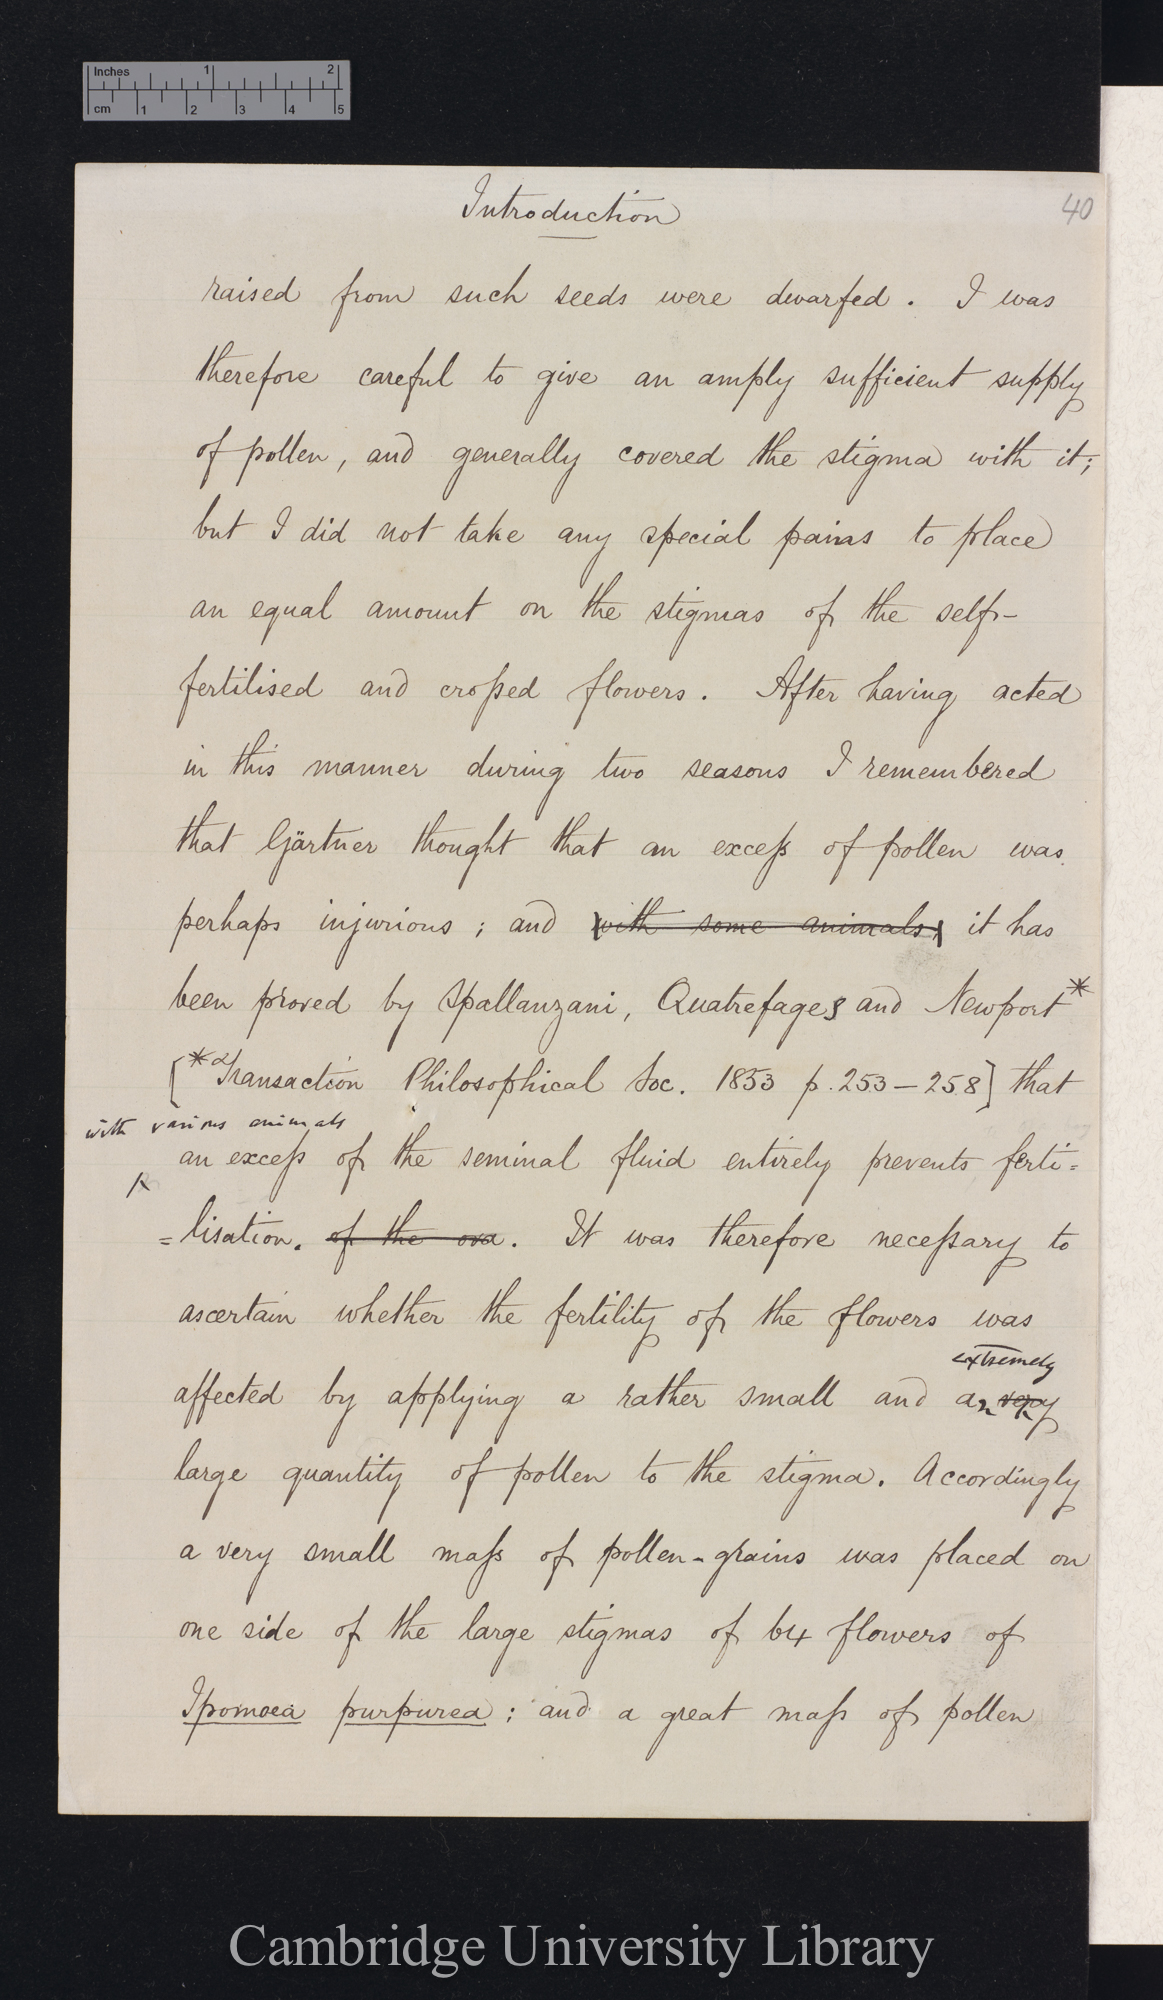 Inches 1 2
cm 1 2 3 4 5
Introduction
40
raised from such seeds were dwarfed. I was
therefore careful to give an amply sufficient supply
of pollen, and generally covered the stigma with it;
but I did not take any special pains to place
an equal amount on the stigmas of the self-
fertilised and croſsed flowers. After having acted
in this manner during two seasons I remembered
that Gärtner thought that an exceſs of pollen was
perhaps injurious; and with some animals, it has
been proved by Spallanzani, Quatrefages and Newport*
[*Transaction Philosophical Soc. 1853 p. 253-258] that
with various animals
an exceſs of the seminal fluid entirely prevents ferti=
=lisation. of the ova. It was therefore neceſsary to
ascertain whether the fertility of the flowers was
extremely
affected by applying a rather small and an very
large quantity of pollen to the stigma. Accordingly
a very small maſs of pollen-grains was placed on
one side of the large stigmas of 64 flowers of
Ipomoea purpurea; and a great maſs of pollen
Cambridge University Library